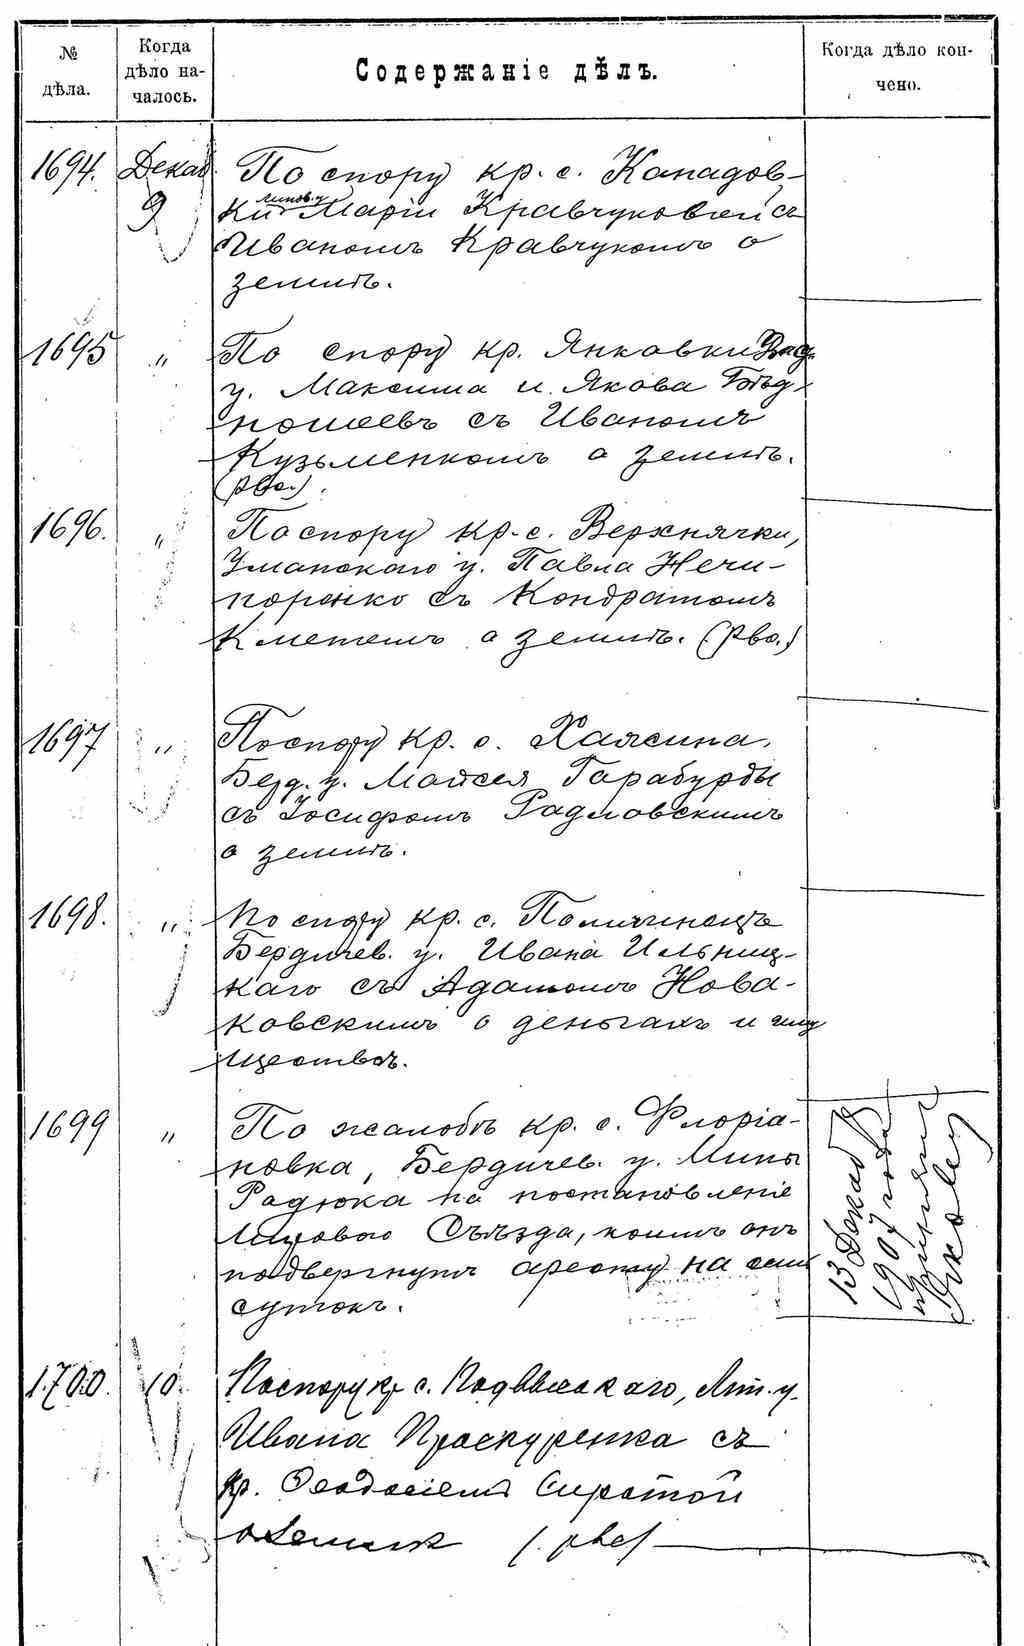 № дѣла.
Когда дѣло началось.
Содержаніе дѣлъ.
Когда дѣло кончено.
1694. Декаб. 9 По спору кр. с. Канадов-
ки Липов. у. Маріи Кравчуковой съ
Иваномъ Кравчукомъ о
землѣ.
1695 " По спору кр. Янковки Звед.
у. Максима и Якова
съ Иваномъ
Кузьменкомъ о землѣ.
(рво.)
1696. " По спору кр. с. Верхнячки,
Уманскаго у. Павла Нечи-
поренко съ Кондратомъ
Кметемъ о землѣ. (рво.)
1697 " По спору кр. с. Хажина,
Берд. у. Мойсея Гарабурды
съ Іосифомъ Радловскимъ
о землѣ.
1698. " По спору кр. с.
Бердичев. у. Ивана Ильниц-
каго съ Адамомъ Нова-
ковскимъ о деньгахъ и иму
ществѣ.
1699 " По жалобѣ кр. с. Флоріа-
новка, Бердичев. у. Мины
Радюка на постановленіе
Мирового Съѣзда, коимъ онъ
подвергнутъ аресту на семь
сутокъ.
13 Декаб
1907 года
1700. 10. По спору кр. с. Подвысокаго, Лип. у.
Ивана Проскуренка съ
кр. Ѳеодосіемъ Сиротой
о землѣ (рво)